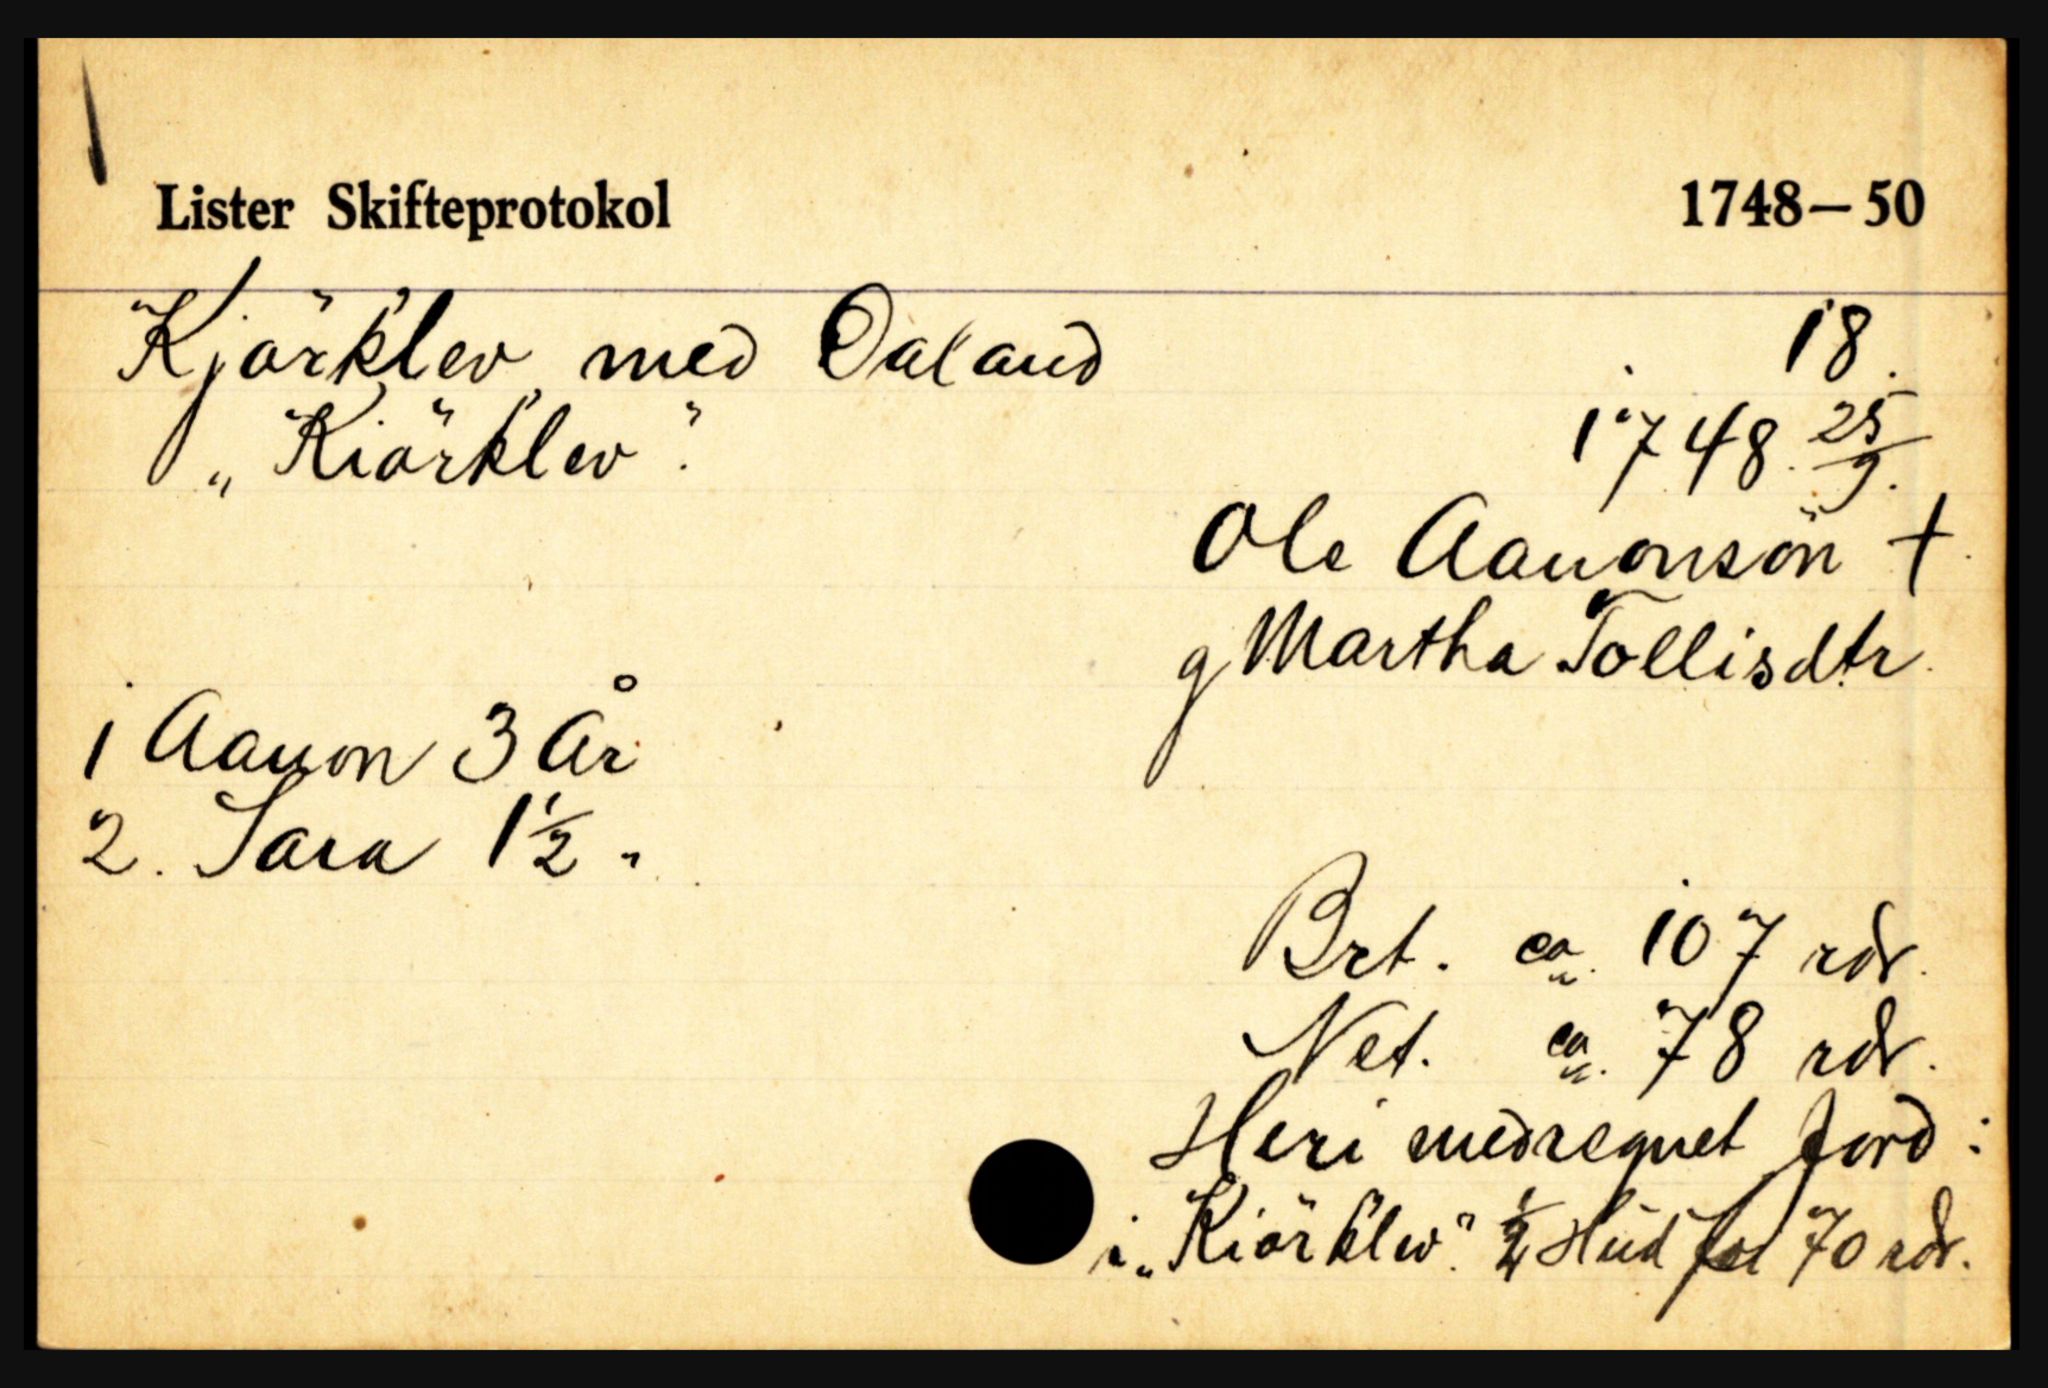 Lister Skifteprotokol 1748–50
Kjörklev med Oaland 18.
„Kiörklev". 1748 25/9.
Ole Aanonsön †
g Martha Tollisdtr.
1 Aanon 3 År
2. Sara 1½ "
Brt. ca. 107 rdr.
Net. ca. 78 rdr.
Heri medregnet Jord:
i „Kiörklev". Hud for 70 rdr.